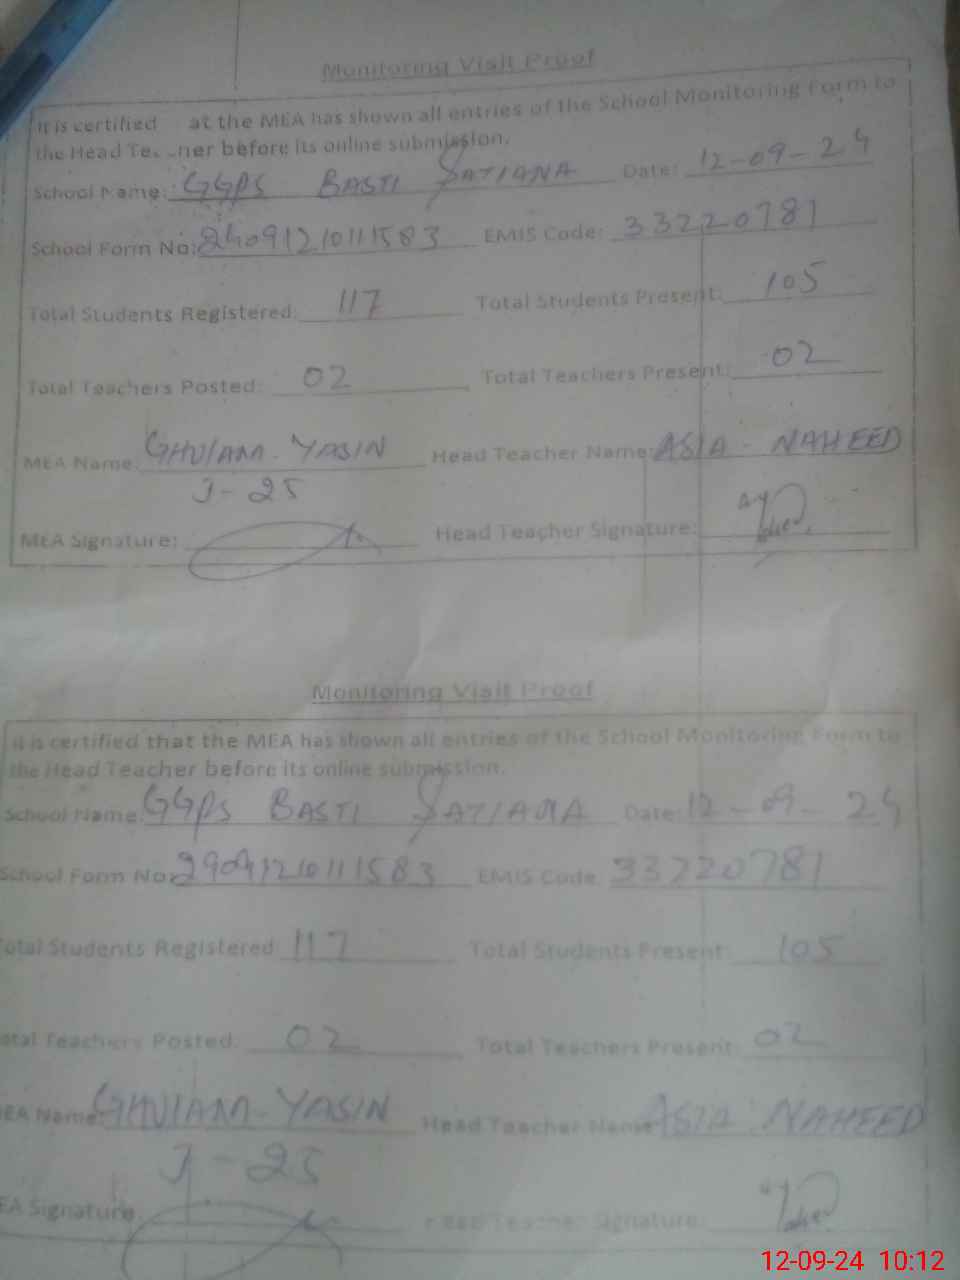 Monitoring Visit Proof
It is certified at the MEA has shown all entries of the School Monitoring Form to
the Head Te ner before its online submission.
School Name: GGPS BASTI SATIANA Date: 12-09-24
School Form No: 24091210111583 EMIS Code: 33220781
Total Students Registered: 117 Total Students Present: 105
Total Teachers Posted: 02 Total Teachers Present: 02
MEA Name: GHULAM YASIN Head Teacher Name: ASIA - NAHEED
J-25
MEA Signature: Head Teacher Signature:
Monitoring Visit Proof
It is certified that the MEA has shown all entries of the School Monitoring Form to
the Head Teacher before its online submission.
School Name: GGPS BASTI SATIANA Date: 12-09-24
School Form No: 24091210111583 EMIS Code: 33220781
Total Students Registered: 117 Total Students Present: 105
otal Teachers Posted: 02 Total Teachers Present: 02
EA Name: GHULAM YASIN Head Teacher Name: ASIA NAHEED
J-25
EA Signature: Head Teacher Signature:
12-09-24 10:12